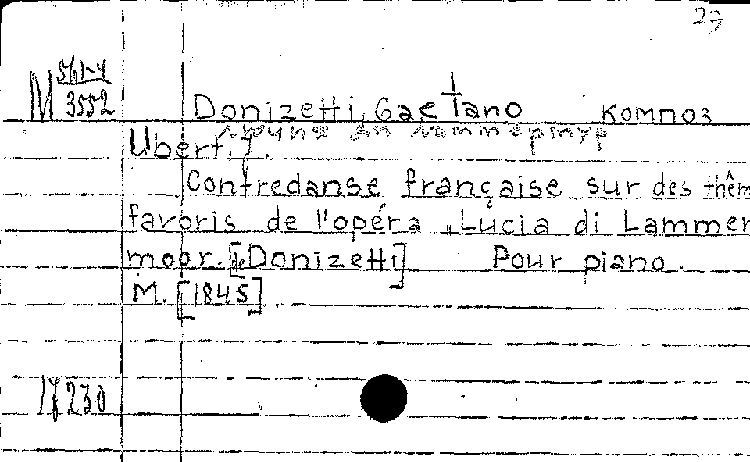 27
М 561-4
3552
Donizetti, Gaetano композ
Лючия ди Ламмермур
Ubert, J.
Contredanse française sur des thêm
favoris de l'opéra „Lucia di Lammer
moor. [de Donizetti] Pour piano.
M. [1845]
17230